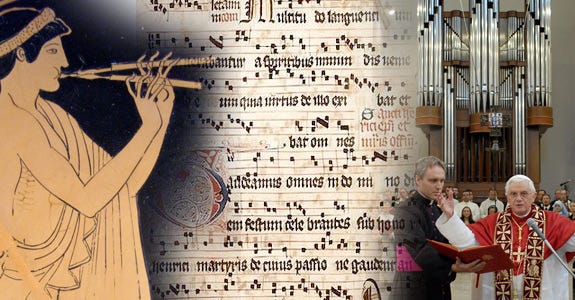 Multitu do languenci
rabantur a spiritibus inmun dis
um quia uirtus de illo exi bat et
bat om nes
audeamus omnes in do mi no
em festum cele brantes sub ho no
henrici martyris de cuius passio ne gaudent an